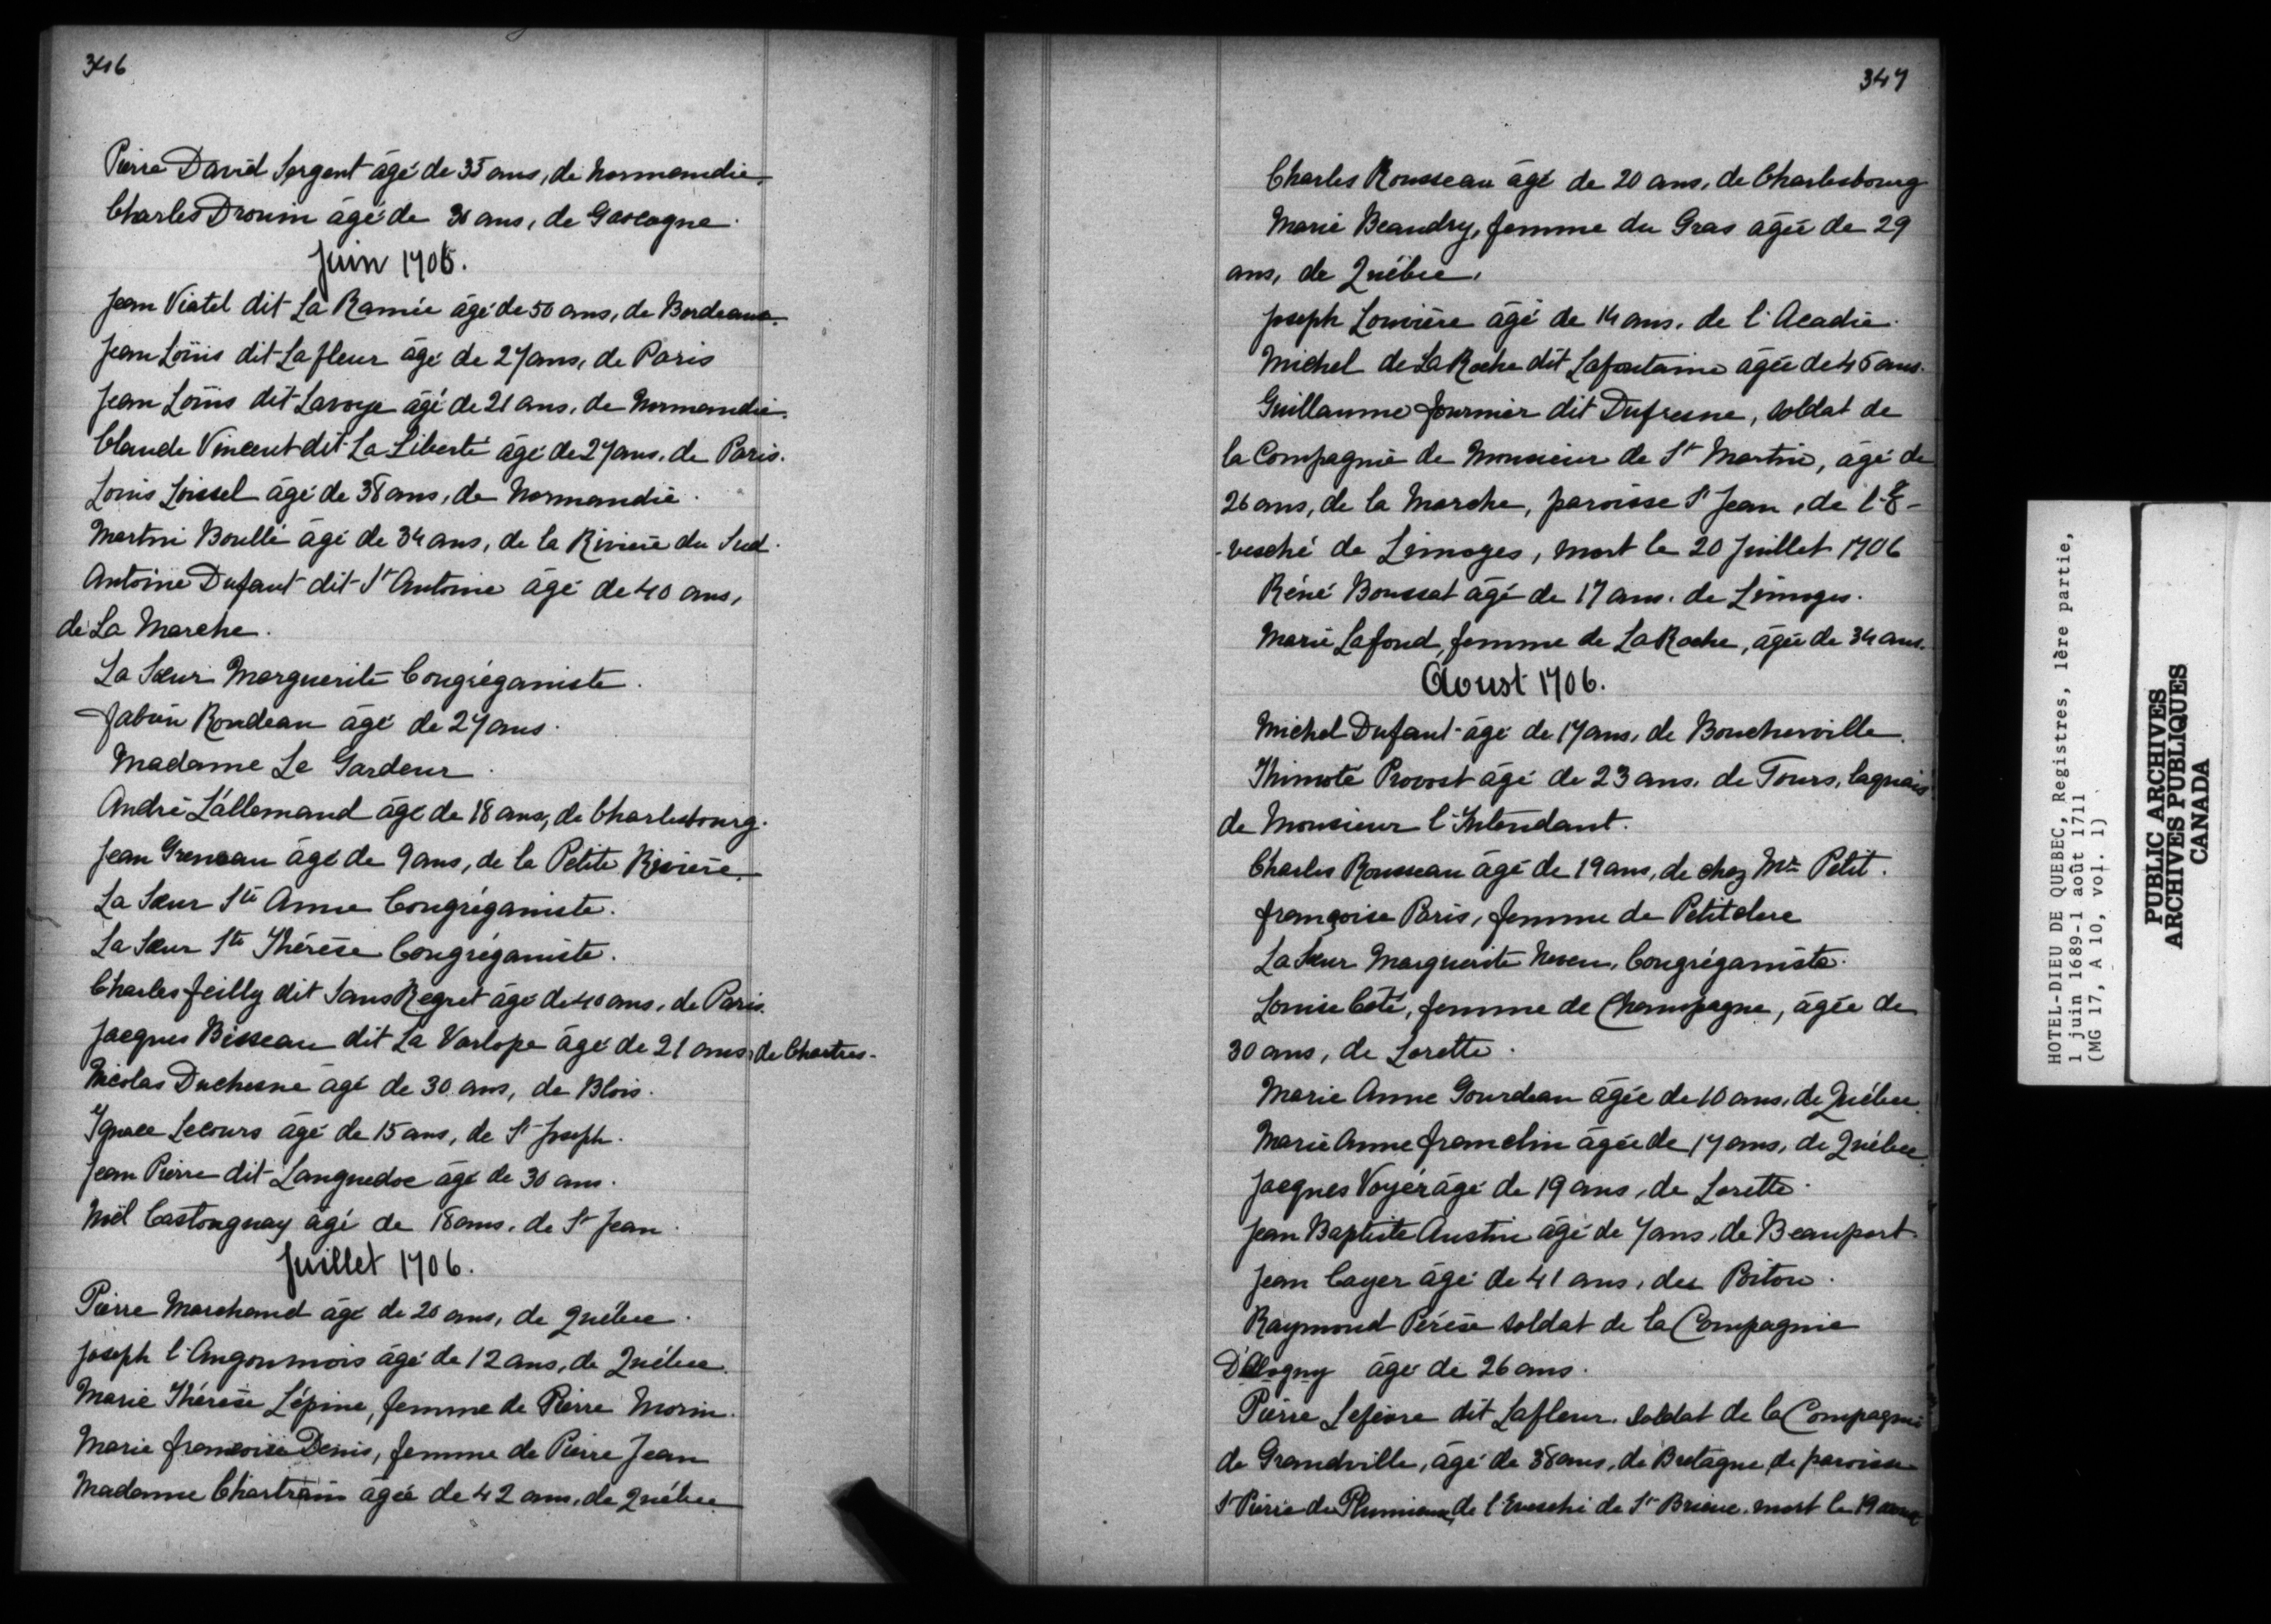 346
Pierre David Sergent âgé de 35 ans, de Normandie.
Charles Drouin âgé de 30 ans, de Gascogne.
Juin 1706.
Jean Viatel dit La Ramée âgé de 50 ans, de Bordeaux.
Jean Loüis dit Lafleur âgé de 27 ans, de Paris
Jean Loüis dit Lavoye âgé de 21 ans, de Normandie.
Claude Vincent dit La Liberté âgé de 27 ans, de Paris.
Louis Loissel âgé de 38 ans, de Normandie.
Martin Boullé âgé de 34 ans, de la Rivière du Sud.
Antoine Dufaut dit St Antoine âgé de 40 ans,
de La Marche.
La Sœur Marguerite Congréganiste.
Fabien Rondeau âgé de 27 ans.
Madame Le Gardeur.
André L'allemand âgé de 18 ans, de Charlesbourg.
Jean Greneau âgé de 9 ans, de la Petite Rivière.
La Sœur Ste Anne Congréganiste.
La Sœur Ste Thérèse Congréganiste.
Charles Feilly dit Sans Regret âgé de 40 ans, de Paris.
Jacques Bisseau dit La Varlope âgé de 21 ans, de Chartres.
Nicolas Duchesne âgé de 30 ans, de Blois.
Ygnace Lecours âgé de 15 ans, de St Joseph.
Jean Pierre dit Languedoc âgé de 30 ans.
Noël Castonguay âgé de 18 ans, de St Jean.
Juillet 1706.
Pierre Marchand âgé de 20 ans, de Québec.
Joseph l'Angoumois âgé de 12 ans, de Québec.
Marie Thérèse Lépine, femme de Pierre Morin.
Marie francoise Denis, femme de Pierre Jean
Madame Chartrain âgée de 42 ans, de Québec
347
Charles Rousseau âgé de 20 ans, de Charlesbourg
Marie Beaudry, femme du Gras âgée de 29
ans, de Québec.
Joseph Louvière âgé de 14 ans, de l'Acadie.
Michel de La Roche dit Lafontaine âgée de 45 ans.
Guillaume fournier dit Dufresne, soldat de
la Compagnie de Monsieur de St Martin, âgé de
26 ans, de la Marche, paroisse St Jean, de l'E-
-vesché de Limoges, mort le 20 Juillet 1706
Réné Boussat âgé de 17 ans, de Limoges.
Marie Lafond, femme de La Roche, âgée de 34 ans.
Aoust 1706.
Michel Dufaut âgé de 17 ans, de Boucherville.
Thimoté Provost âgé de 23 ans, de Tours, laquais
de Monsieur l'Intendant.
Charles Rousseau âgé de 19 ans, de chez Mr Petit.
françoise Paris, femme de Petitclerc
La Sœur Marguerite Neveu, Congréganiste.
Louise Coté, femme de Champagne, âgée de
30 ans, de Lorette.
Marie Anne Gourdeau âgée de 10 ans, de Québec.
Marie Anne franclin âgée de 17 ans, de Québec.
Jacques Voyér âgé de 19 ans, de Lorette.
Jean Baptiste Austin âgé de 7 ans, de Beauport.
Jean Cayer âgé de 41 ans, des Poitou.
Raymond Pérèse soldat de la Compagnie
D'Alogny âgé de 26 ans.
Pierre Lefèvre dit Lafleur, Soldat de la Compagnie
de Grandville, âgé de 38 ans, de Bretagne, de paroisse
St Pierre de Plumieux, de l'Evesché de St Brieuc, mort le 19 aoust
HOTEL-DIEU DE QUEBEC, Registres, 1ère partie,
1 juin 1689-1 août 1711
(MG 17, A 10, vol. 1)
PUBLIC ARCHIVES
ARCHIVES PUBLIQUES
CANADA